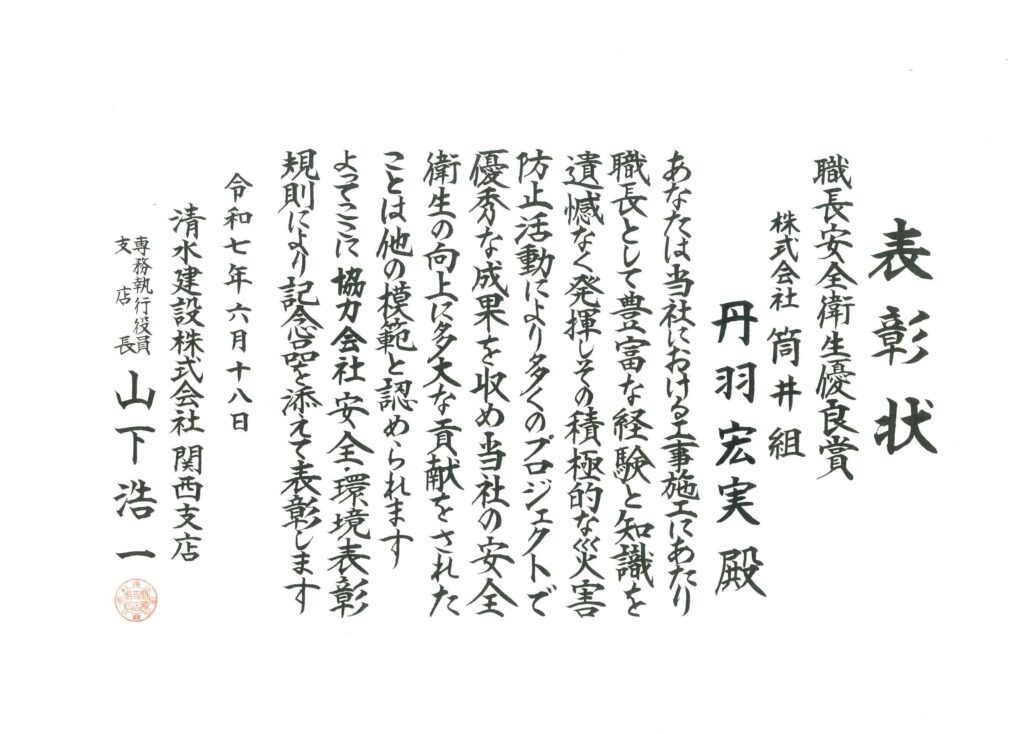 表彰状
職長安全衛生優良賞
株式会社 筒井組
丹羽宏実 殿
あなたは当社における工事施工にあたり
職長として豊富な経験と知識を
遺憾なく発揮しその積極的な災害
防止活動により多くのプロジェクトで
優秀な成果を収め当社の安全
衛生の向上に多大な貢献をされた
ことは他の模範と認められます
よってここに協力会社安全・環境表彰
規則により記念品を添えて表彰します
令和七年六月十八日
清水建設株式会社 関西支店
専務執行役員
支店長 山下浩一